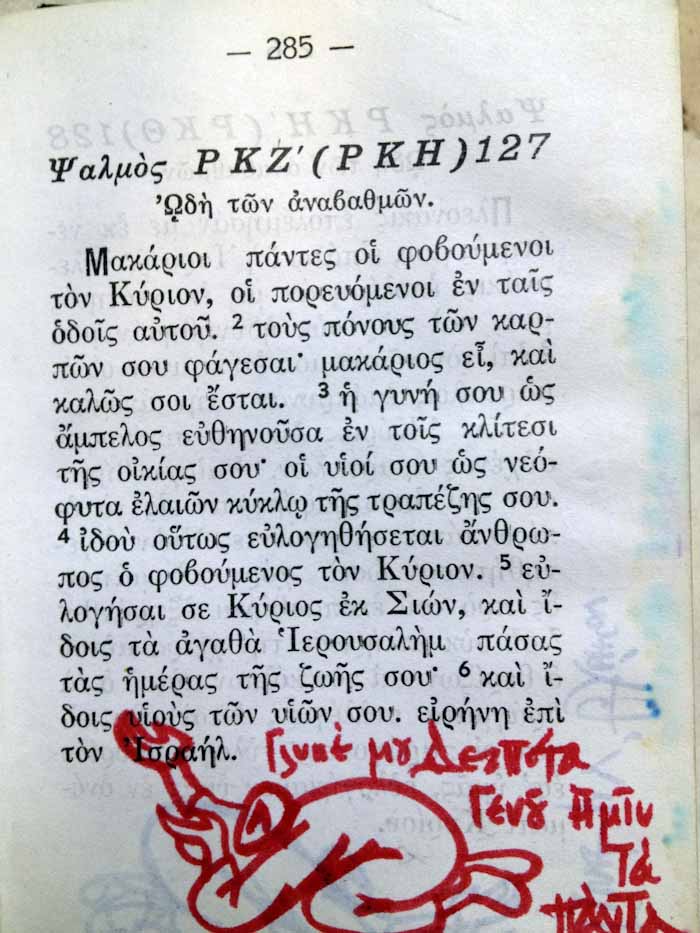 — 285 —
Ψαλμὸς ΡΚΖ′(ΡΚΗ)127
ᾨδὴ τῶν ἀναβαθμῶν.
Μακάριοι πάντες οἱ φοβούμενοι
τὸν Κύριον, οἱ πορευόμενοι ἐν ταῖς
ὁδοῖς αὐτοῦ. ² τοὺς πόνους τῶν καρ-
πῶν σου φάγεσαι· μακάριος εἶ, καὶ
καλῶς σοι ἔσται. ³ ἡ γυνή σου ὡς
ἄμπελος εὐθηνοῦσα ἐν τοῖς κλίτεσι
τῆς οἰκίας σου· οἱ υἱοί σου ὡς νεό-
φυτα ἐλαιῶν κύκλῳ τῆς τραπέζης σου.
⁴ ἰδοὺ οὕτως εὐλογηθήσεται ἄνθρω-
πος ὁ φοβούμενος τὸν Κύριον. ⁵ εὐ-
λογήσαι σε Κύριος ἐκ Σιών, καὶ ἴ-
δοις τὰ ἀγαθὰ Ἱερουσαλὴμ πάσας
τὰς ἡμέρας τῆς ζωῆς σου· ⁶ καὶ ἴ-
δοις υἱοὺς τῶν υἱῶν σου. εἰρήνη ἐπὶ
τὸν Ἰσραήλ.
Γλυκὲ μου Δεσπότα
Γενοῦ ἡμῖν
Τὰ
πάντα